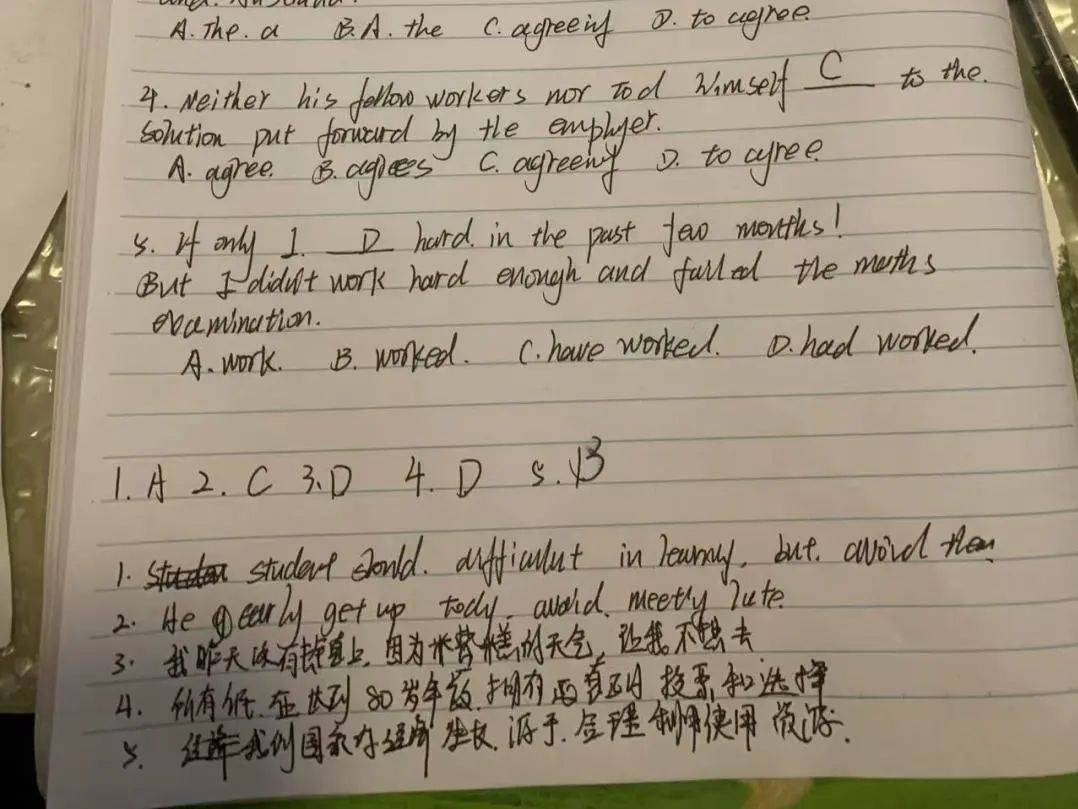 A. The. a B. A. the C. agreeing D. to agree
4. Neither his fellow workers nor Tod himself C to the.
solution put forward by the emplyer.
A. agree. B. agrees C. agreeing D. to agree
5. If only I. D hard. in the past few months!
But I didn't work hard enough and failed the maths
examination.
A. work. B. worked. C. have worked. D. had worked.
1. A 2. C 3. D 4. D 5. B
1. student should. difficult in learning, but. avoid
2. He early get up tody. avoid. meetly late.
3. 我昨天没有 因为 的天气, 让我不想去
4. 所有 在达到80岁年龄.拥有 投票和选择
5. 我们国家 源于.合理利用使用资源.